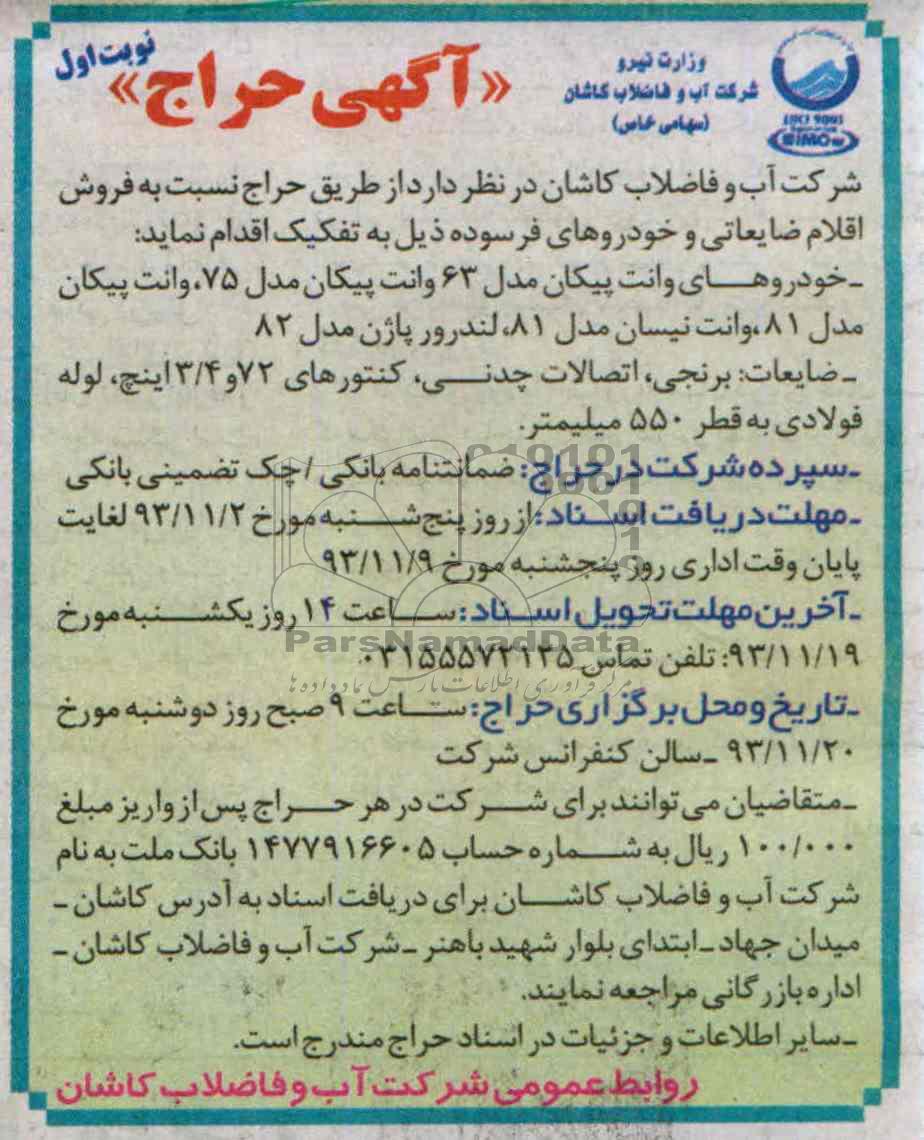 نوبت اول
«آگهی حراج»
وزارت نیرو
شرکت آب و فاضلاب کاشان
(سهامی خاص)
شرکت آب و فاضلاب کاشان در نظر دارد از طریق حراج نسبت به فروش
اقلام ضایعاتی و خودروهای فرسوده ذیل به تفکیک اقدام نماید:
ـ خودروهای وانت پیکان مدل ۶۳ وانت پیکان مدل ۷۵، وانت پیکان
مدل ۸۱، وانت نیسان مدل ۸۱، لندرور پاژن مدل ۸۲
ـ ضایعات: برنجی، اتصالات چدنی، کنتورهای ۷۲ و ۳/۴ اینچ، لوله
فولادی به قطر ۵۵۰ میلیمتر.
ـ سپرده شرکت در حراج: ضمانتنامه بانکی / چک تضمینی بانکی
ـ مهلت دریافت اسناد: از روز پنج شنبه مورخ ۹۳/۱۱/۲ لغایت
پایان وقت اداری روز پنجشنبه مورخ ۹۳/۱۱/۹
ـ آخرین مهلت تحویل اسناد: ساعت ۱۴ روز یکشنبه مورخ
۹۳/۱۱/۱۹: تلفن تماس ۰۳۱۵۵۵۷۲۱۳۵
ParsNamadData
مرکز فرآوری اطلاعات پارس نماد داده ها
ـ تاریخ و محل برگزاری حراج: ساعت ۹ صبح روز دوشنبه مورخ
۹۳/۱۱/۲۰ ـ سالن کنفرانس شرکت
ـ متقاضیان می توانند برای شرکت در هر حراج پس از واریز مبلغ
۱۰۰/۰۰۰ ریال به شماره حساب ۱۴۷۷۹۱۶۶۰۵ بانک ملت به نام
شرکت آب و فاضلاب کاشان برای دریافت اسناد به آدرس کاشان ـ
میدان جهاد ـ ابتدای بلوار شهید باهنر ـ شرکت آب و فاضلاب کاشان ـ
اداره بازرگانی مراجعه نمایند.
ـ سایر اطلاعات و جزئیات در اسناد حراج مندرج است.
روابط عمومی شرکت آب و فاضلاب کاشان